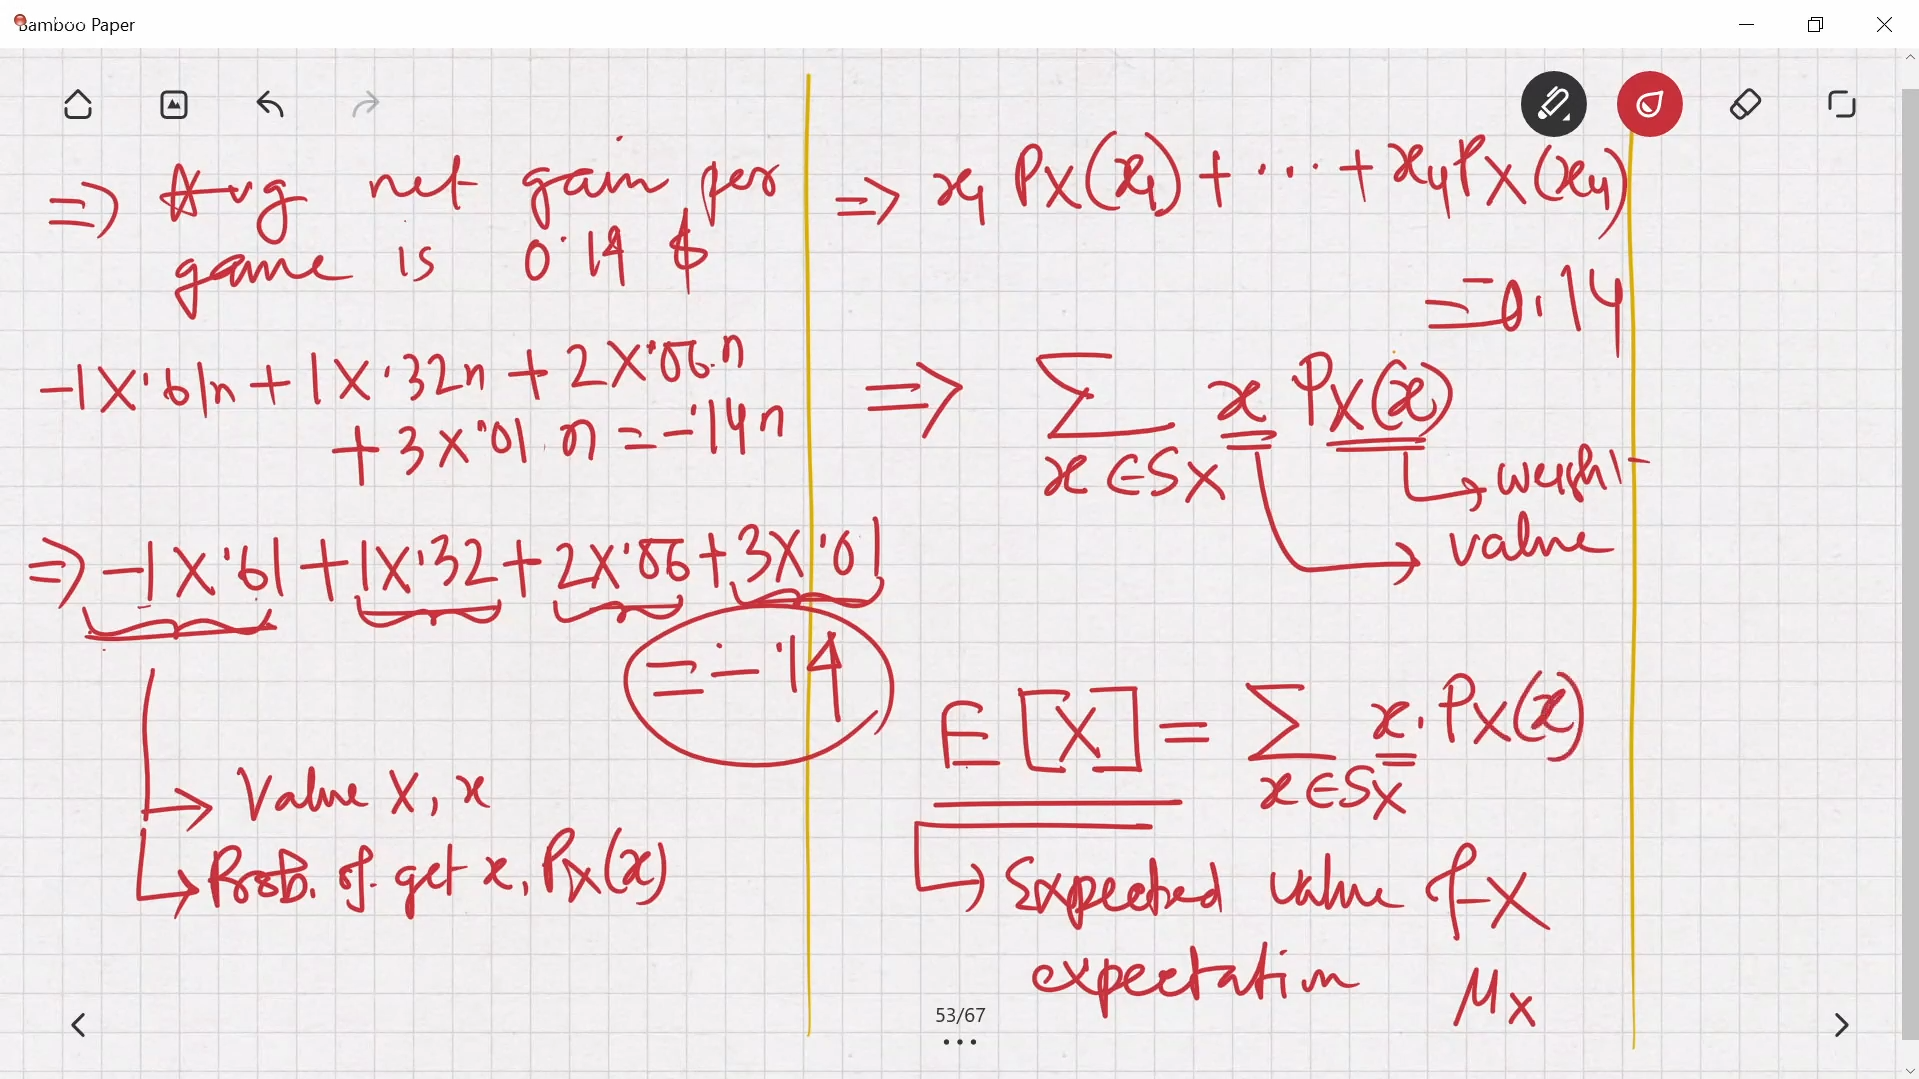 Bamboo Paper
⇒ Avg net gain per
game is 0.14 $
-1X.61n + 1X.32n + 2X.06.n
+ 3X.01.n = -.14n
⇒ -1X.61 + 1X.32 + 2X.06 + 3X.01
= -.14
Value X, x
Prob. of get x, PX(x)
⇒ x1 PX(x1) + ... + x4 PX(x4)
= -0.14
⇒ Σ x PX(x)
x ∈ SX
weight
value
E[X] = Σ x. PX(x)
x ∈ SX
Expected value of X
expectation μX
53/67